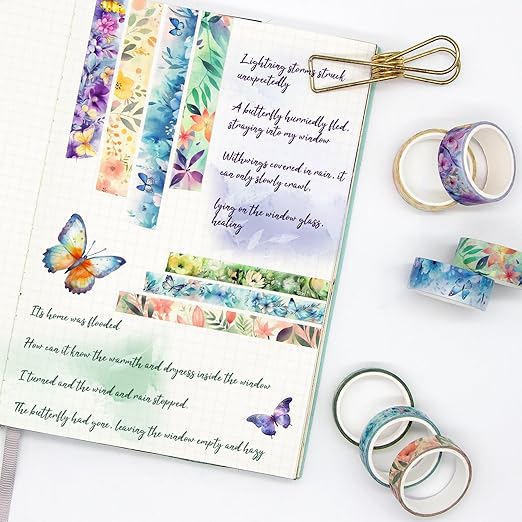 Lightning storms struck
unexpectedly
A butterfly hurriedly fled,
straying into my window
Withwings covered in rain, it
can only slowly crawl,
lying on the window glass,
healing
Its home was flooded
How can it know the warmth and dryness inside the window
I turned and the wind and rain stopped.
The butterfly had gone, leaving the window empty and hazy